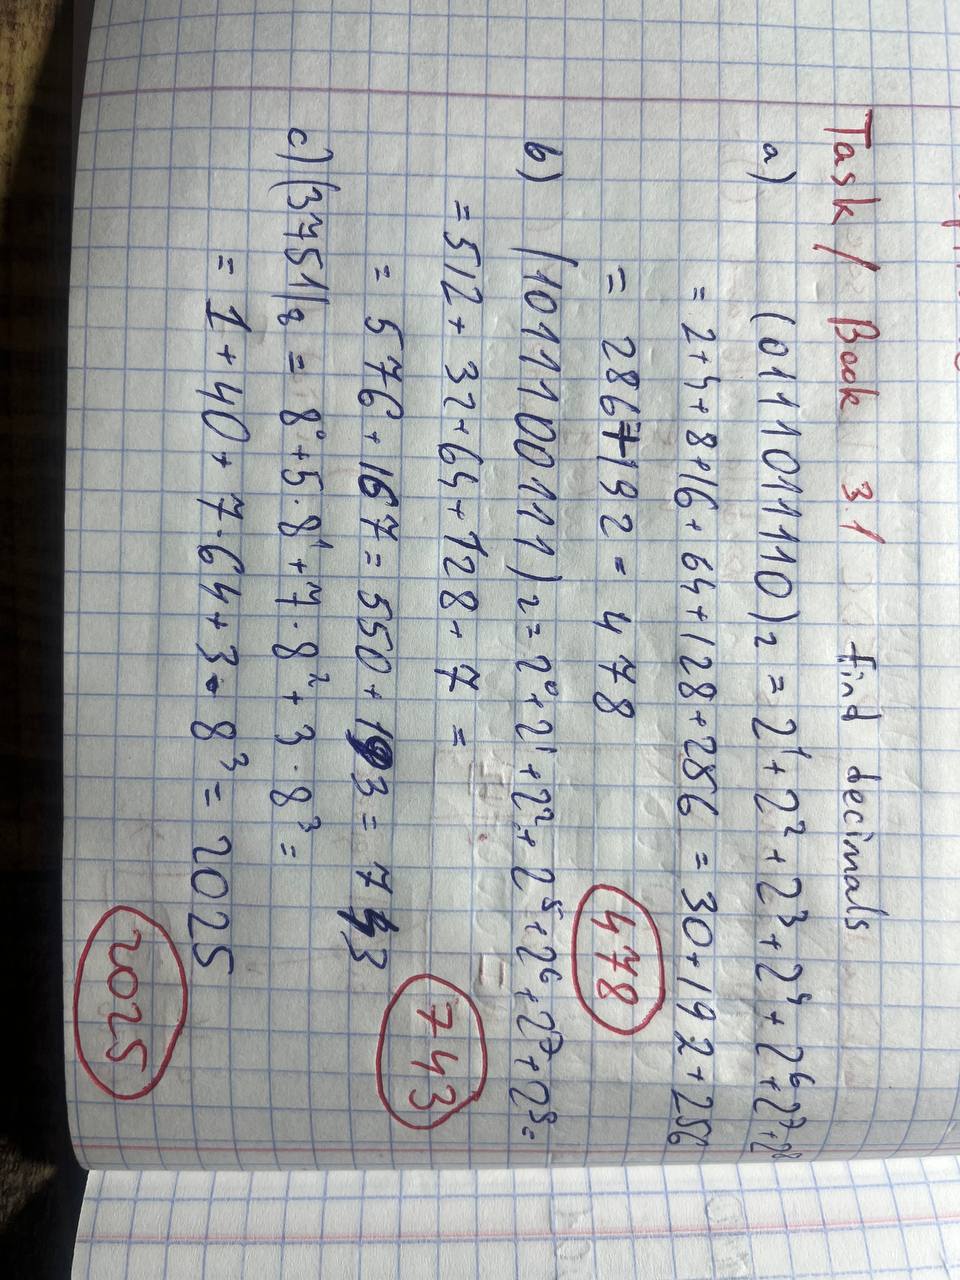 Task / Book 3.1 find decimals
a) (0111011110)₂ = 2¹ + 2² + 2³ + 2⁴ + 2⁶ + 2⁷ + 2⁸
= 2 + 4 + 8 + 16 + 64 + 128 + 256 = 30 + 192 + 256
= 286 + 192 = 478
478
b) (1011100111)₂ = 2⁰ + 2¹ + 2² + 2⁵ + 2⁶ + 2⁷ + 2⁹ =
= 512 + 32 + 64 + 128 + 7 =
= 576 + 167 = 550 + 193 = 743
743
c) (3751)₈ = 8⁰ + 5 · 8¹ + 7 · 8² + 3 · 8³ =
= 1 + 40 + 7 · 64 + 3 · 8³ = 2025
2025